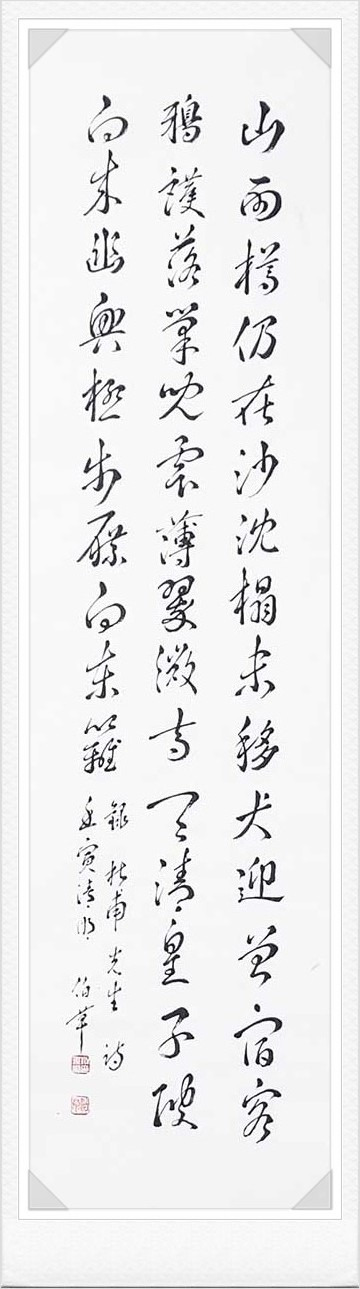 山雨樽仍在沙沈榻未移犬迎曾宿客
鴉護落巢兒雲薄翠微寺天清皇子陂
向來幽興極步屧向東籬
錄杜甫先生詩
壬寅清明 伯